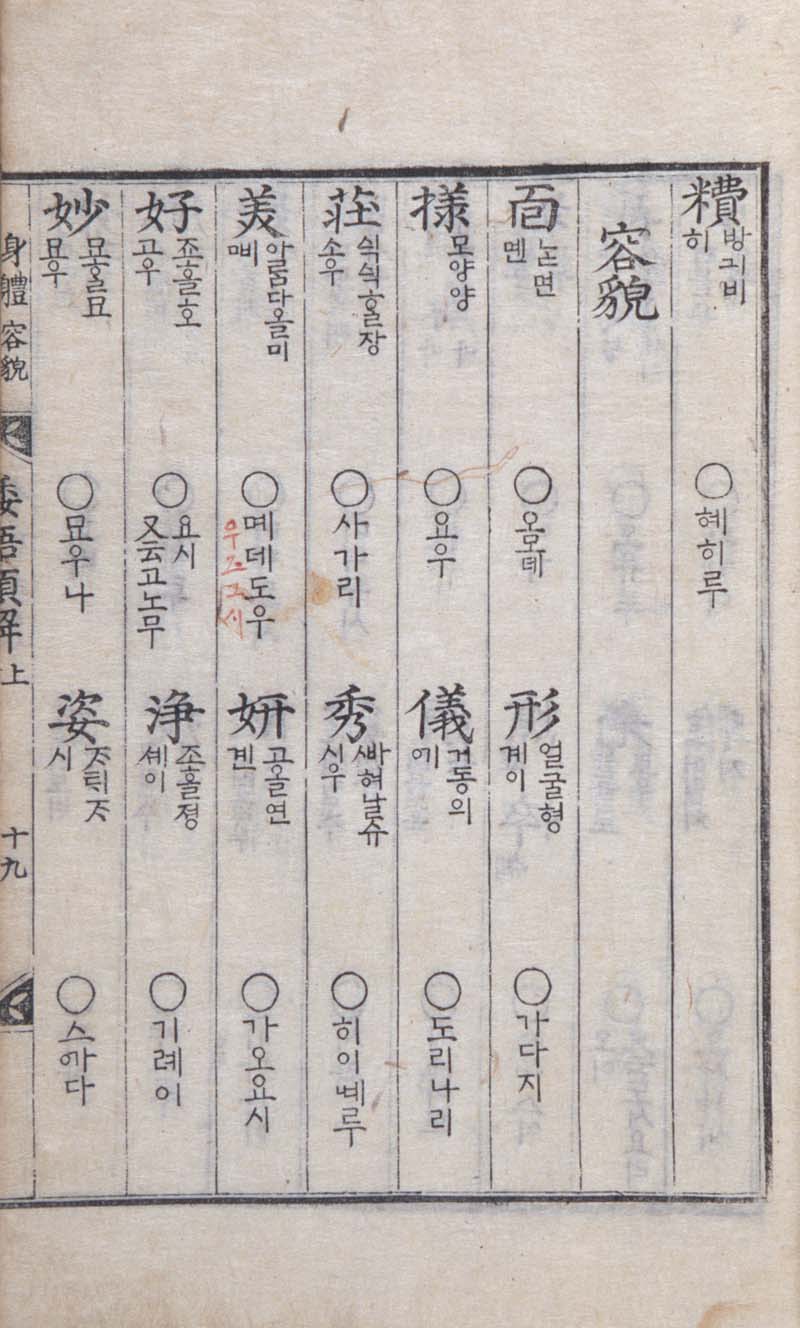 糟 방긔비 히 ○혜히루
容貌
面 ᄂᆞᆺ면 멘 ○오모뎨
形 얼굴형 계이 ○가다지
様 모양양 ○요우
儀 거동의 ᅌᅵ ○도리나리
莊 싁싁ᄒᆞᆯ장 소우 ○사가리
秀 ᄲᅢ혀날슈 시우 ○히이ᅄᅨ루
美 아ᄅᆞᆷ다올미 ᄆᆡ ○몌데도우 우즈그시
妍 고ᄋᆞᆯ연 겐 ○가오요시
好 죠ᄒᆞᆯ호 고우 ○요시 又云고노무
淨 조ᄒᆞᆯ졍 셰이 ○기례이
妙 묘ᄒᆞᆯ묘 묘우 ○묘우나
姿 ᄌᆞᄐᆡᄌᆞ 시 ○스ᅌᅡ다
身體 容貌
倭語類解上
十九